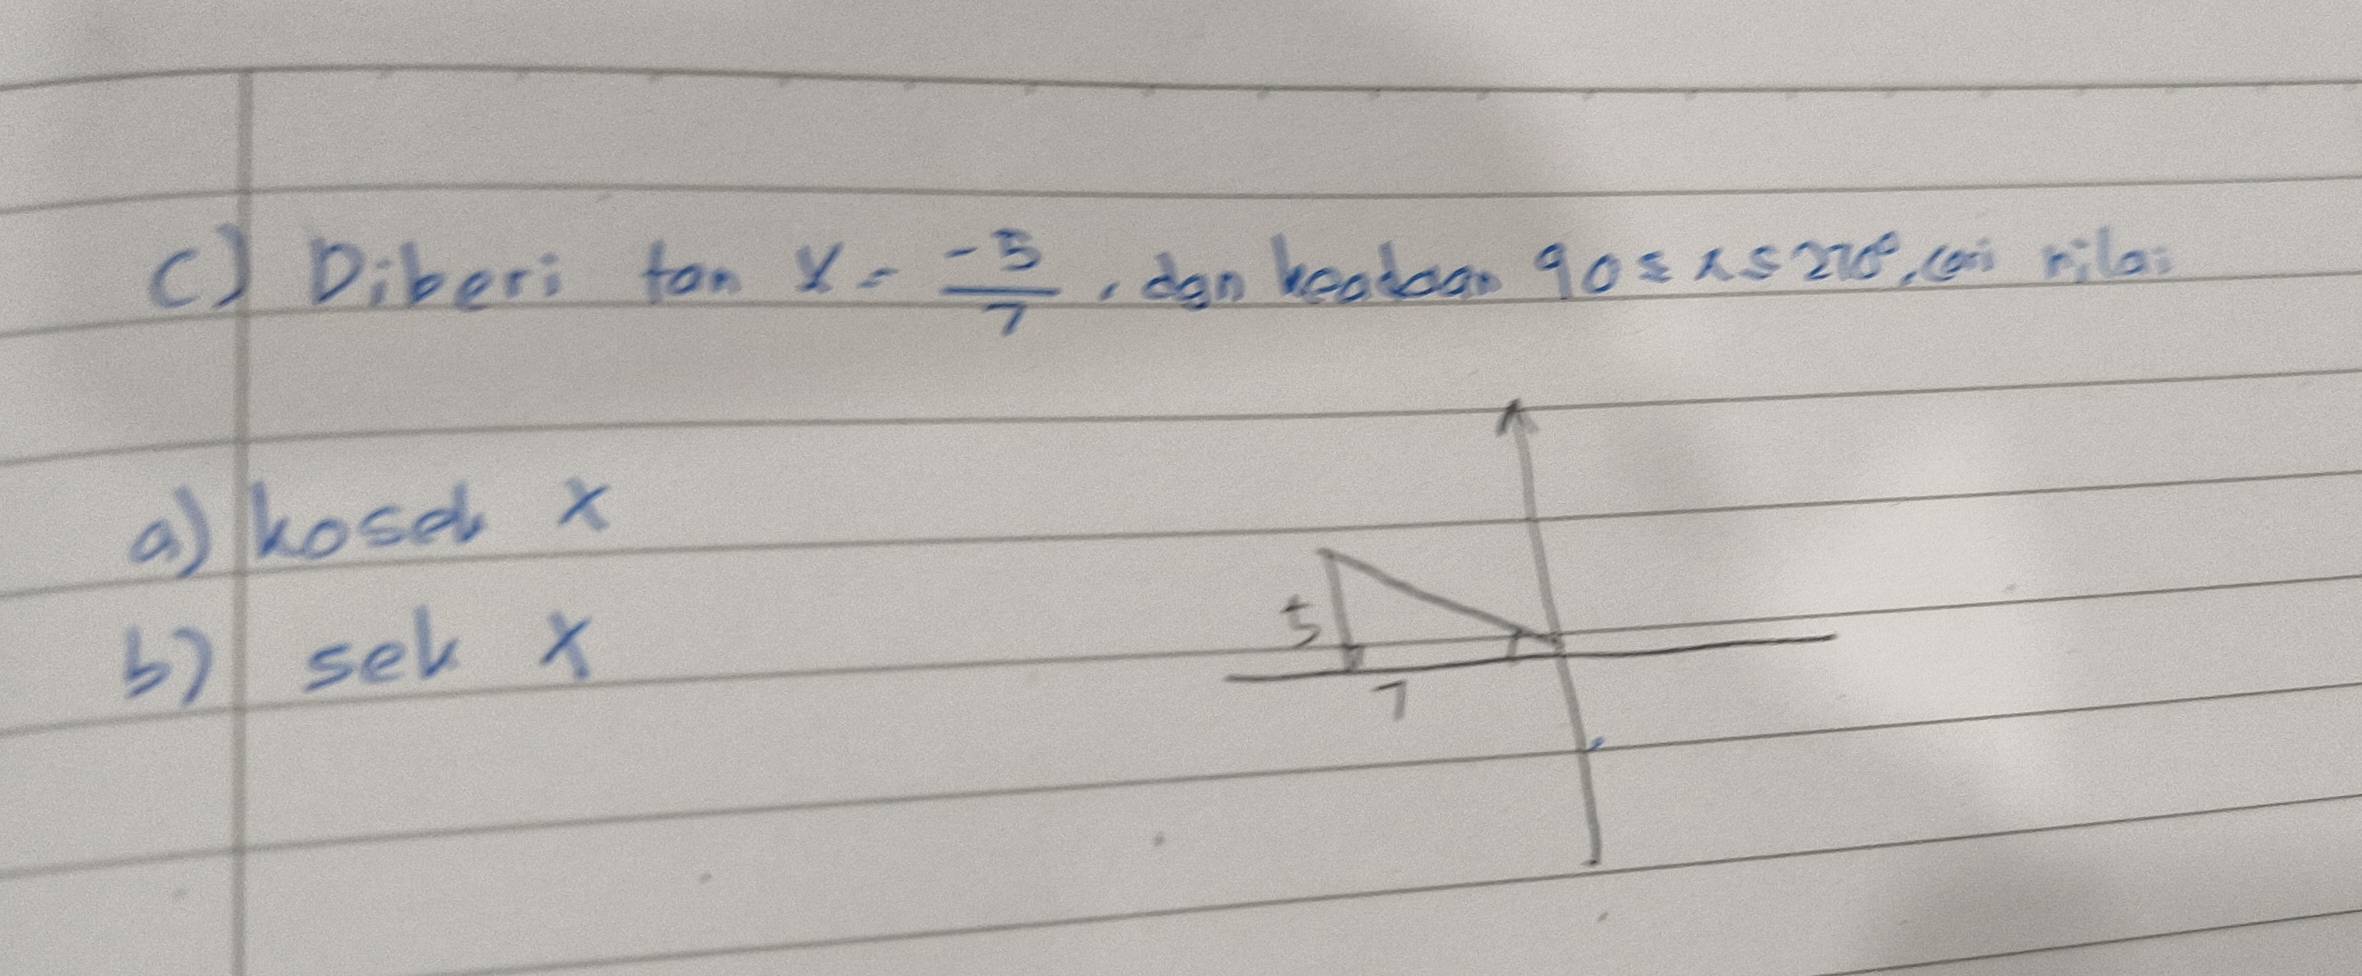 C) Diberi tan x = -5/7, dan keadaan 90 ≤ x ≤ 270°, cari nilai
a) kosek x
b) sek x
5
7